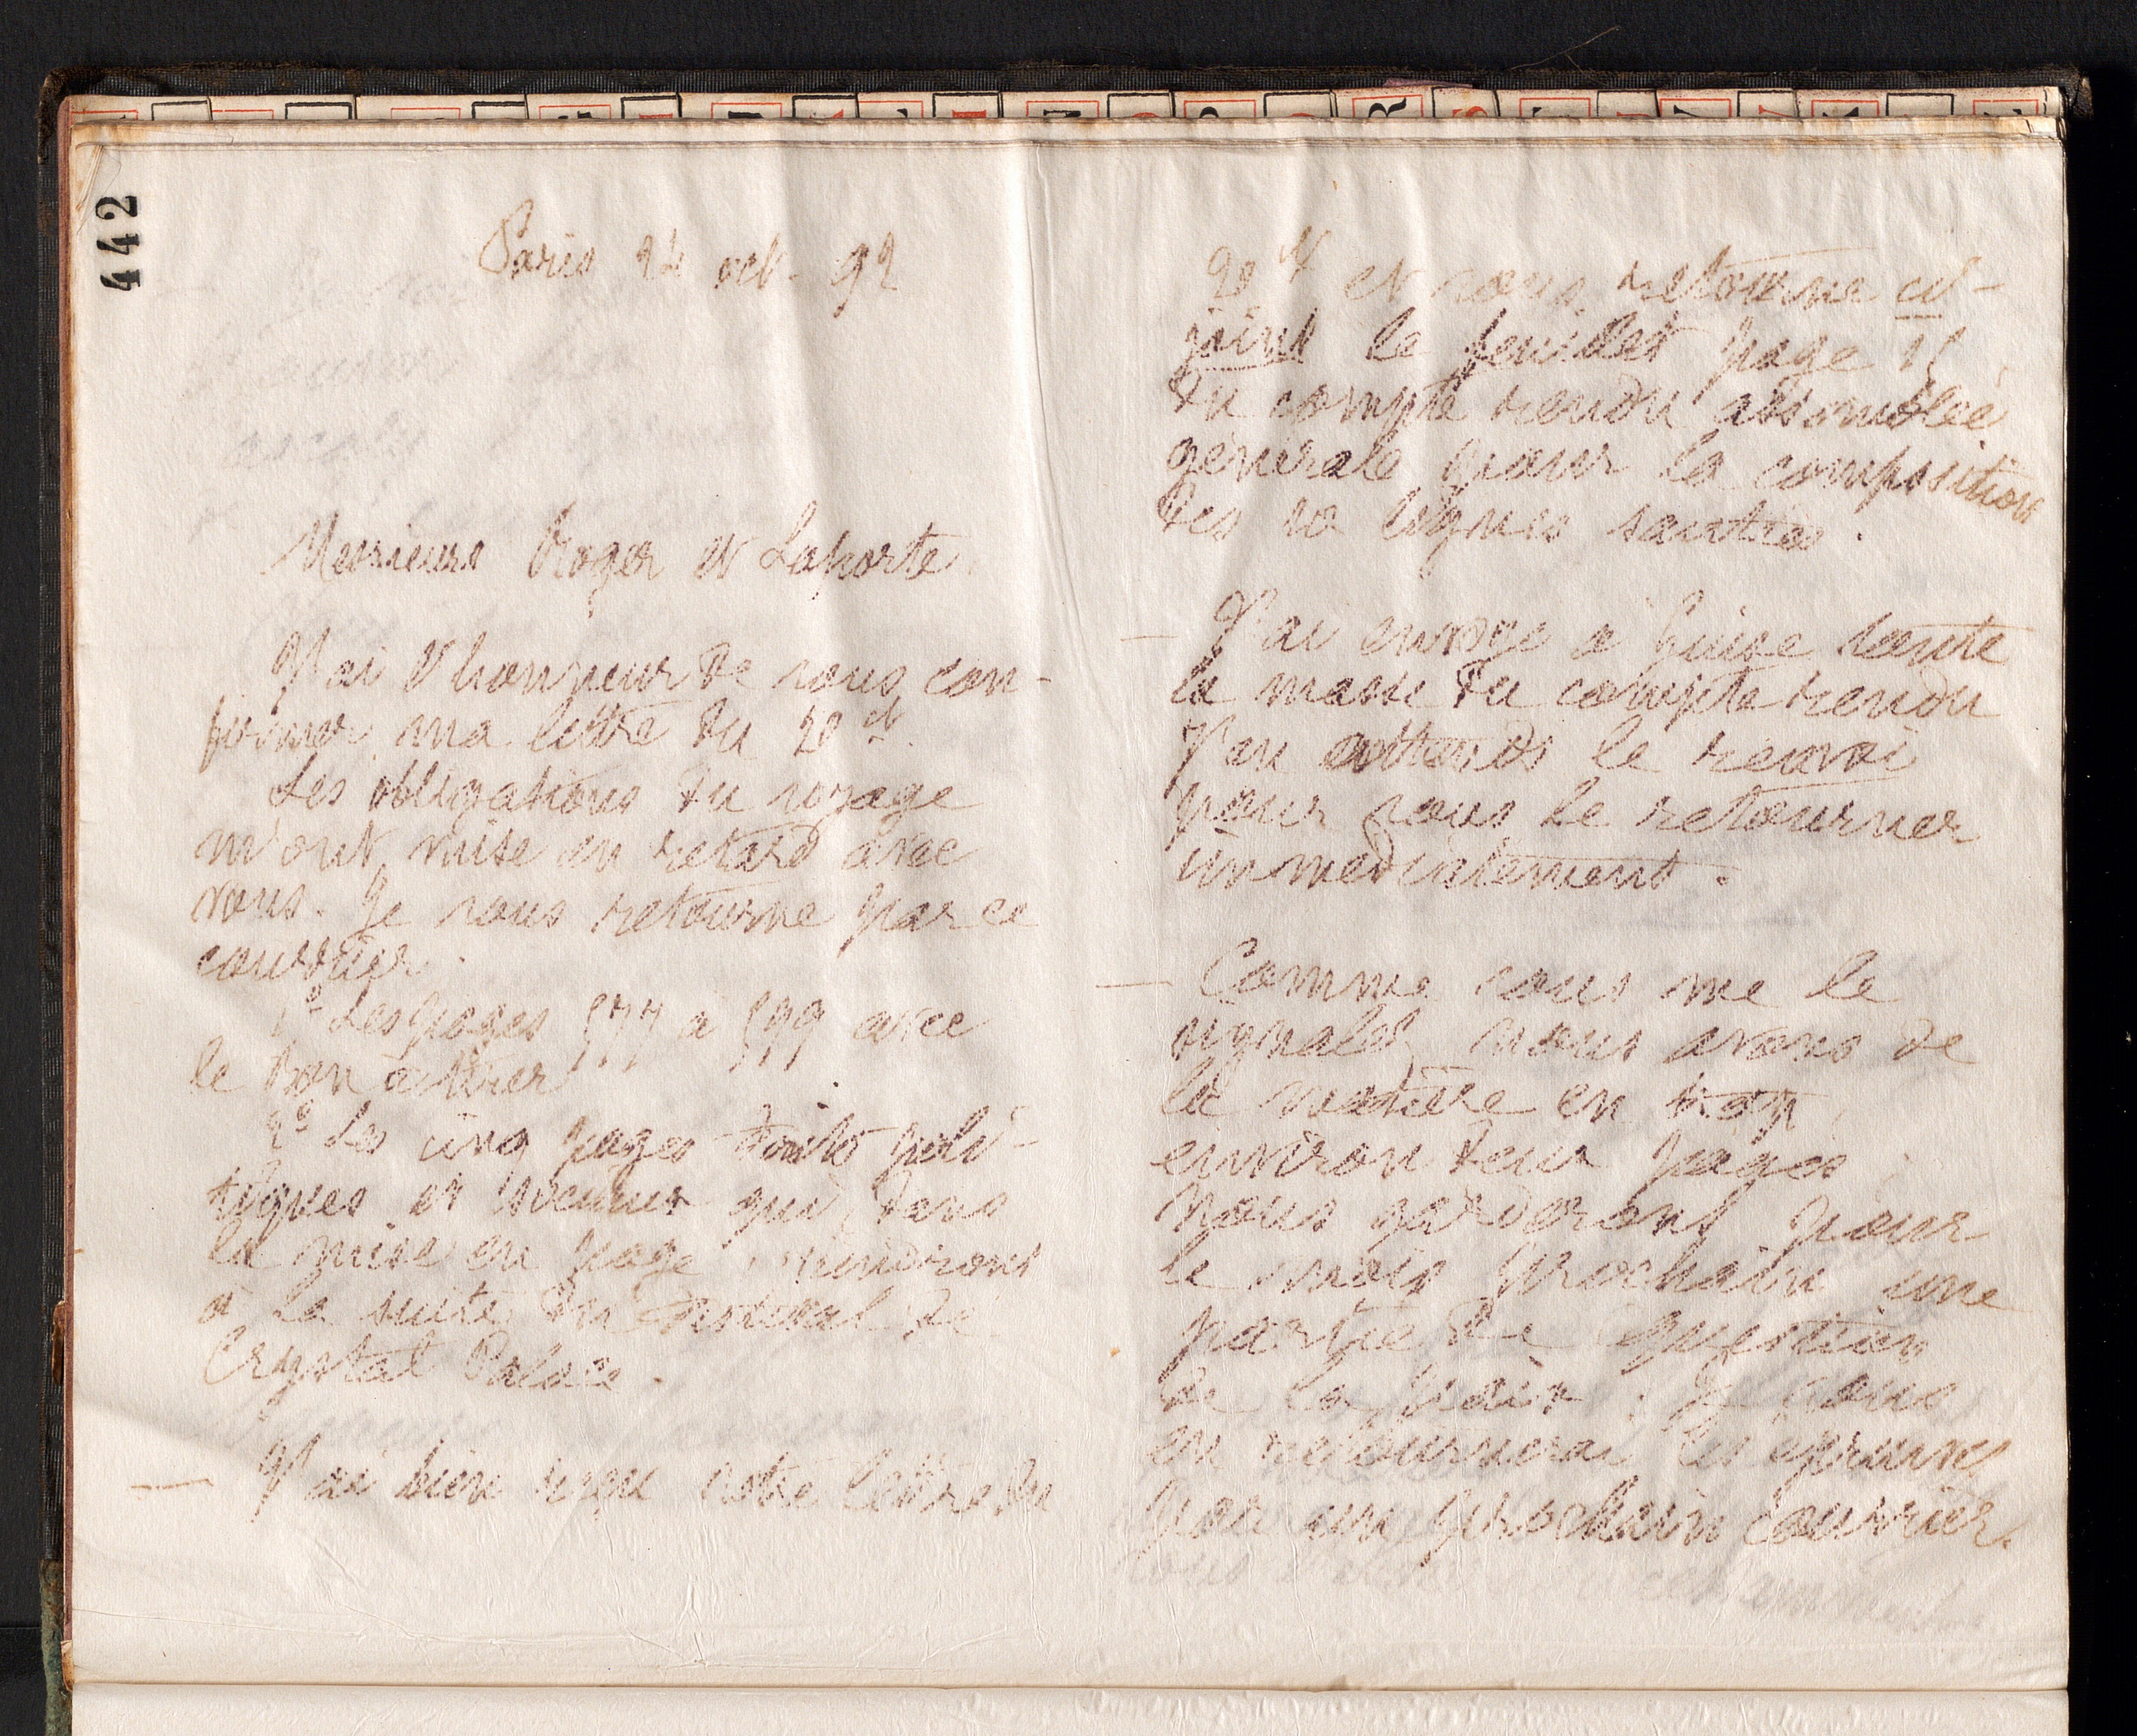 442
Paris 24 oct. 92
Messieurs Roger et Laporte,
J'ai l'honneur de vous con-
firmer ma lettre du 20 ct
Les obligations du voyage
m'ont mise en retard avec
vous. Je vous retourne par ce
courrier.
1º Les pages 577 a 599 avec
le bon à tirer.
2º Les cinq pages Faits poli-
tiques et sociaux qui, dans
la mise en page, viendront
à la suite du Festival de
Crystal Palace.
— J'ai bien reçu votre lettre du
20 ct et vous retourne ci-
joint le feuillet page 15
du compte rendu assemblée
générale pour la composition
des 10 lignes sautées.
— J'ai envoyé à Guise toute
la masse du compte rendu
J'en attends le renvoi
pour vous le retourner
immédiatement.
— Comme vous me le
signalez, nous avons de
la matière en trop,
environ deux pages;
Nous garderons pour
le mois prochain une
partie de Question
de la paix. Je vous
en retournerai les épreuves
par un prochain courrier.